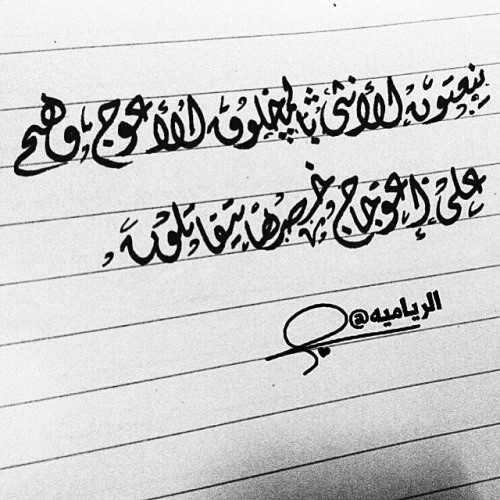 ينعتون الأنثى بالمخلوق الأعوج، وهم
على إعوجاج خصرها يتقاتلون
الرياميه@